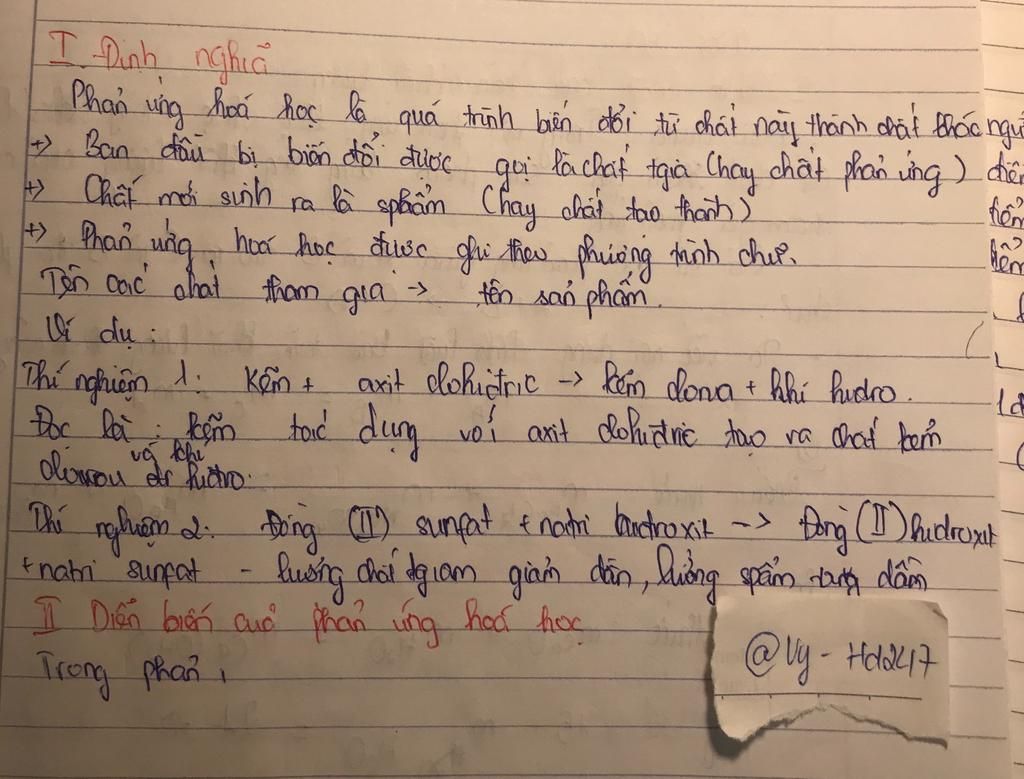 I. Định nghĩa
Phản ứng hoá học là quá trình biến đổi từ chất này thành chất khác
+> Ban đầu bị biến đổi được gọi là chất tgia (hay chất phản ứng)
+> Chất mới sinh ra là spẩẩm (hay chất tạo thành)
+> Phản ứng hoá học được ghi theo phương trình chữ.
Tên các chất tham gia -> tên sản phẩm.
Ví dụ:
Thí nghiệm 1: Kẽm + axit clohiđric -> kẽm clorua + khí hidro.
Đọc là: kẽm tác dụng với axit clohiđric tạo ra chất kẽm
và khí
hidro.
Thí nghiệm 2: Đồng (II) sunfat + natri hidroxit -> Đồng (II) hidroxit
+ natri sunfat - lượng chất tgiam giảm dần, lượng spẩm tăng dần
II Diễn biến của phản ứng hoá học
Trong phản
@Vy - Hd2417